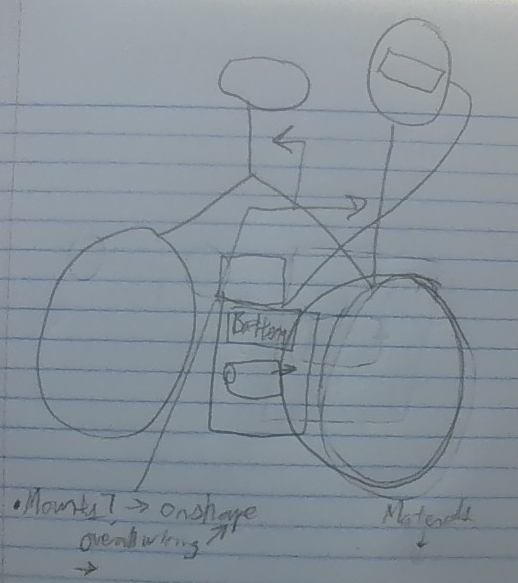 Battery
• Mounts → onshape
overall wiring ↗
→
Materials
↓